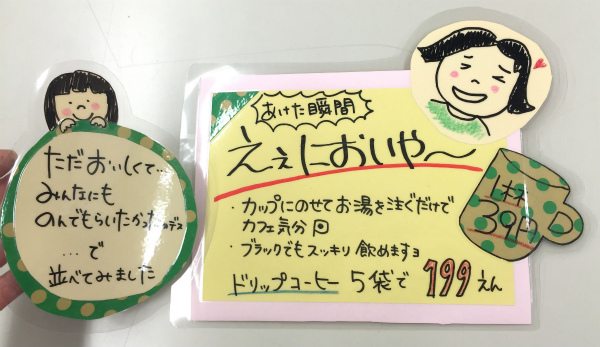 ただおいしくて…
みんなにも
のんでもらいたかったのデス
…で
並べてみました
あけた瞬間
えぇにおいや〜
・カップにのせてお湯を注ぐだけで
カフェ気分
・ブラックでもスッキリ飲めますョ
ドリップコーヒー 5袋で 199えん
1杯
39円